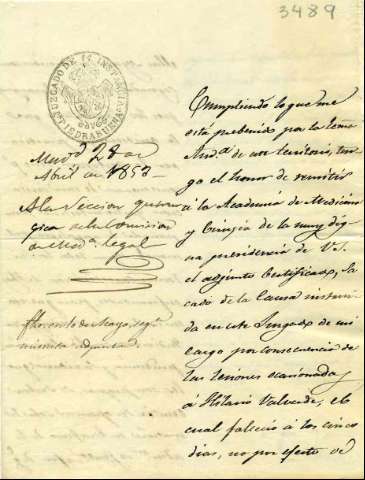 3489
JUZGADO DE 1ª INSTANCIA
PIEDRABUENA
Madᵈ 28 de
Abril de 1853
A la Seccion quirur
gica de la Comision
de Medª legal
Cumpliendo lo que me
está prebenido por la Exma
Audª de este territorio, ten-
go el honor de remitir
á la Academia de Medicina
y Cirugia de la muy dig
na presidencia de V.S.
el adjunto Certificado, sa
cado de la Causa instrui
da en este Juzgado de mi
cargo por consecuencia de
las lesiones ocasionadas
á Hilario Valverde, el
cual falleció á los cinco
dias, no por efecto de